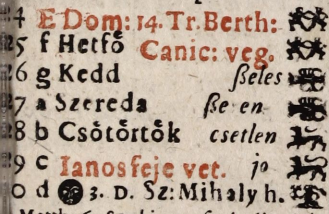 4 E Dom: 14. Tr. Berth:
25 f Hetfő Canic: veg.
26 g Kedd ſseles
27 a Szereda ſse en
28 b Csötörtök csetlen
29 c Ianos feje vet. jo
0 d 3. D. Sz: Mihaly h.